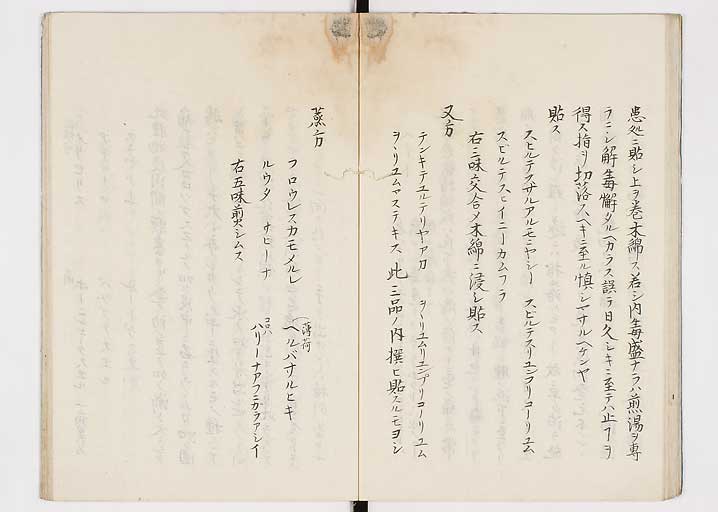 患処ニ貼シ上ヲ巻木綿ス若シ内毒盛ナラハ煎湯ヲ専
ラニシ解毒懈タルヘカラス誤テ日久シキニ至テハ止ヿヲ
得ス指ヲ切落スヘキニ至ル慎シマサルヘケンヤ
貼ス
スヒルテスサルアルモニヤシー スヒルテスリユンフリコーリユム
スヒルテスヒイニーカムフラ
右三味交合〆木綿ニ浸シ貼ス
又方
テンキテユルテリヤアカ ヲヽリユムリユンプリコーリユム
ヲヽリユムマステキス 此三品ノ内撰ヒ貼スルモヨシ
蒸方
フロウレスカモメルレ (薄荷 ヘルバサルヒキ
ルウタ サヒーナ コロハ ハリーナアフニガラアシイ
右五味煎シムス